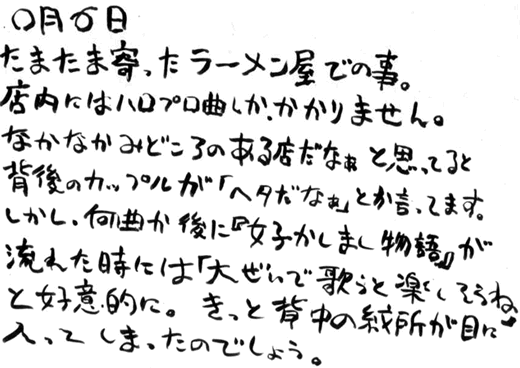 ○月○日
たまたま寄ったラーメン屋での事。
店内にはハロプロ曲しか、かかりません。
なかなかみどころのある店だなぁと思ってると
背後のカップルが「ヘタだなぁ」とか言ってます。
しかし、何曲か後に『女子かしまし物語』が
流れた時には「大ぜいで歌うと楽しそうね」
と好意的に。きっと背中の紋所が目に
入ってしまったのでしょう。